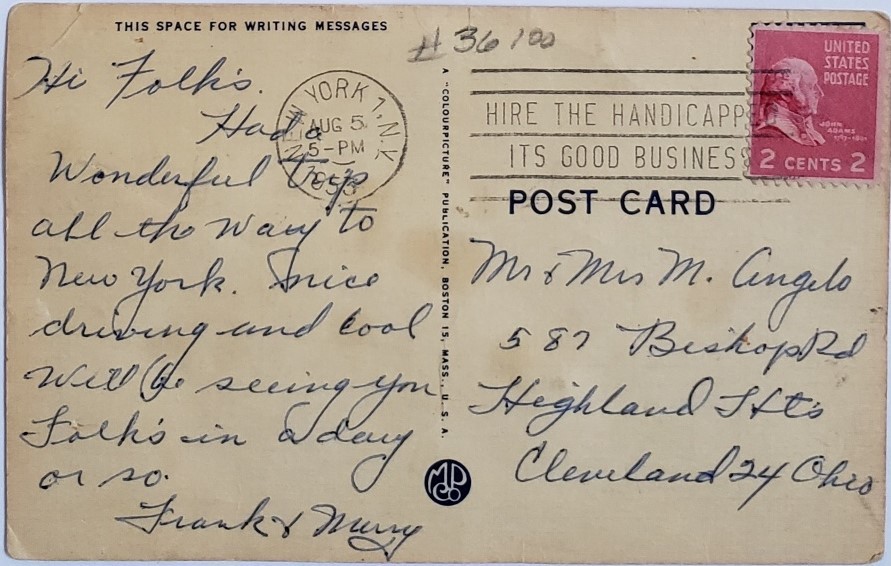 THIS SPACE FOR WRITING MESSAGES
# 36 100
Hi Folk's.
Had a
Wonderful Trip
all the way to
New York. nice
driving and cool
Will be seeing you
Folk's in a day
or so.
Frank & Mury
NEW YORK 1, N.Y.
AUG 5
5-PM
HIRE THE HANDICAPP
ITS GOOD BUSINESS
UNITED
STATES
POSTAGE
JOHN
ADAMS
2 CENTS 2
A "COLOURPICTURE" PUBLICATION, BOSTON 15, MASS., U.S.A.
POST CARD
Mr & Mrs M. Angelo
587 Bishop Rd
Highland Hts
Cleveland 24 Ohio
MPCo